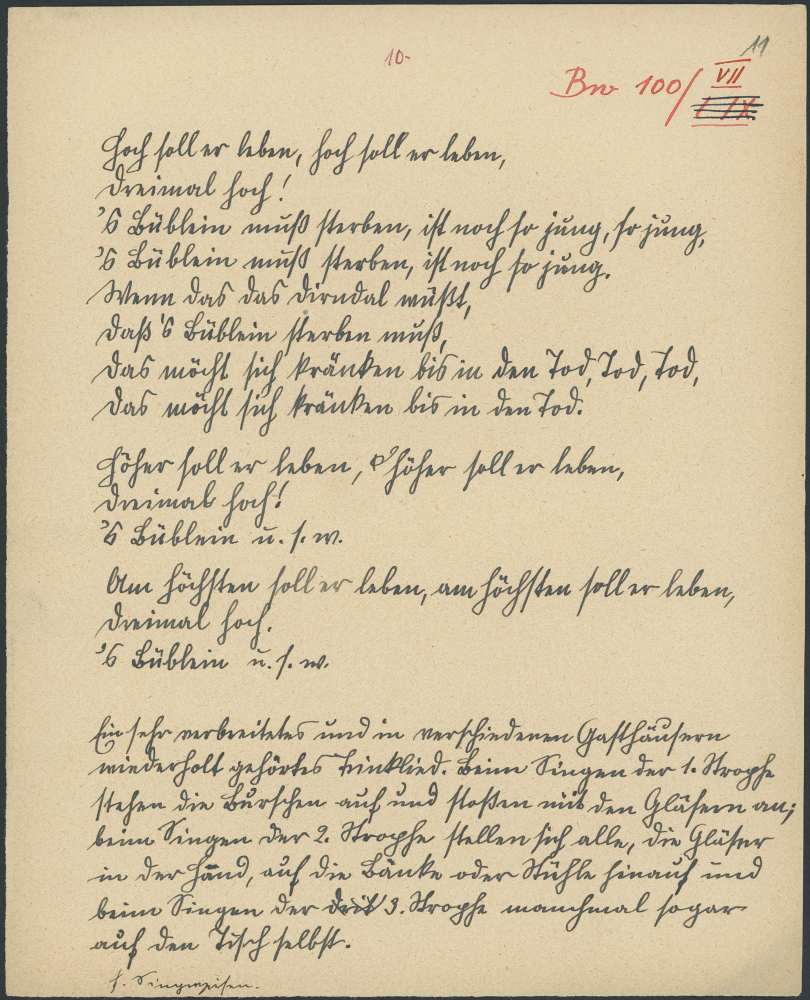 10-
11
Bw 100/VII
I IX.
Hoch soll er leben, hoch soll er leben,
Dreimal hoch!
's Büblein muß sterben, ist noch so jung, so jung,
's Büblein muß sterben, ist noch so jung.
Wenn das das Dirndal wüßt,
Daß 's Büblein sterben muß,
Das möcht sich kränken bis in den Tod, Tod, Tod,
Das möcht sich kränken bis in den Tod.
Höher soll er leben, höher soll er leben,
Dreimal hoch!
's Büblein u. s. w.
Am höchsten soll er leben, am höchsten soll er leben,
Dreimal hoch.
's Büblein u. s. w.
Ein sehr verbreitetes und in verschiedenen Gasthäusern
wiederholt gehörtes Trinklied. Beim Singen der 1. Strophe
stehen die Burschen auf und stoßen mit den Gläsern an;
beim Singen der 2. Strophe stellen sich alle, die Gläser
in der Hand, auf die Bänke oder Stühle hinauf und
beim Singen der drit 3. Strophe manchmal sogar
auf den Tisch selbst.
s. Singweisen.